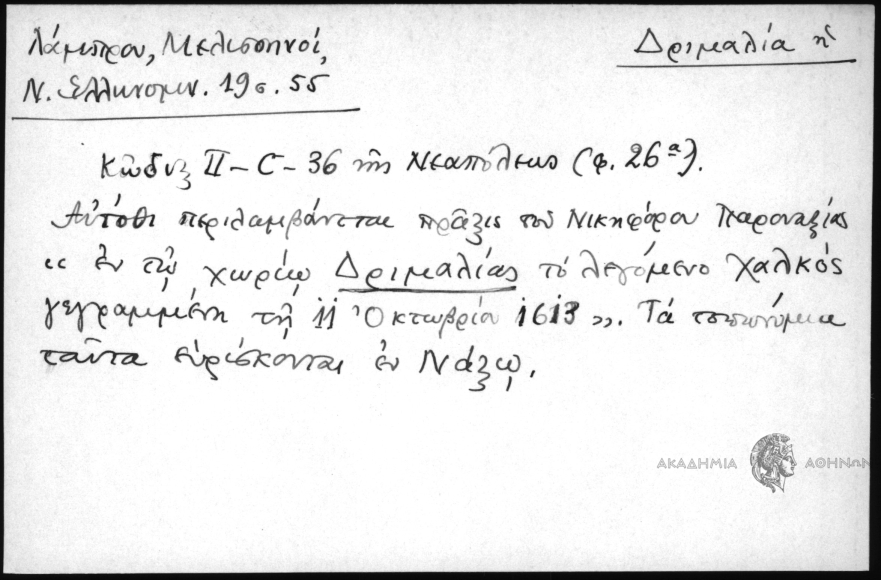 Λάμπρου, Μελισσηνοί,
Ν. Ελληνομν. 19σ. 55
Δριμαλία ἡ
Κῶδιξ ΙΙ-C-36 τῆς Νεαπόλεως (φ. 26ᵃ).
Αὐτόθι περιλαμβάνεται πρᾶξις τοῦ Νικηφόρου Παροναξίας
«ἐν τῷ χωρίῳ Δριμαλίας τό λεγόμενο χαλκός
γεγραμμένη τῇ 11 Ὀκτωβρίου 1613». Τά τοπωνύμια
ταῦτα εὑρίσκονται ἐν Νάξῳ.
ΑΚΑΔΗΜΙΑ ΑΘΗΝΩΝ